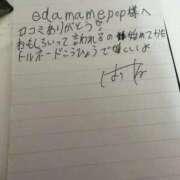 edamamepop様へ
口コミありがとう
おもしろいって言われるの始めてかも
トルネードこうひょうで嬉しいよ